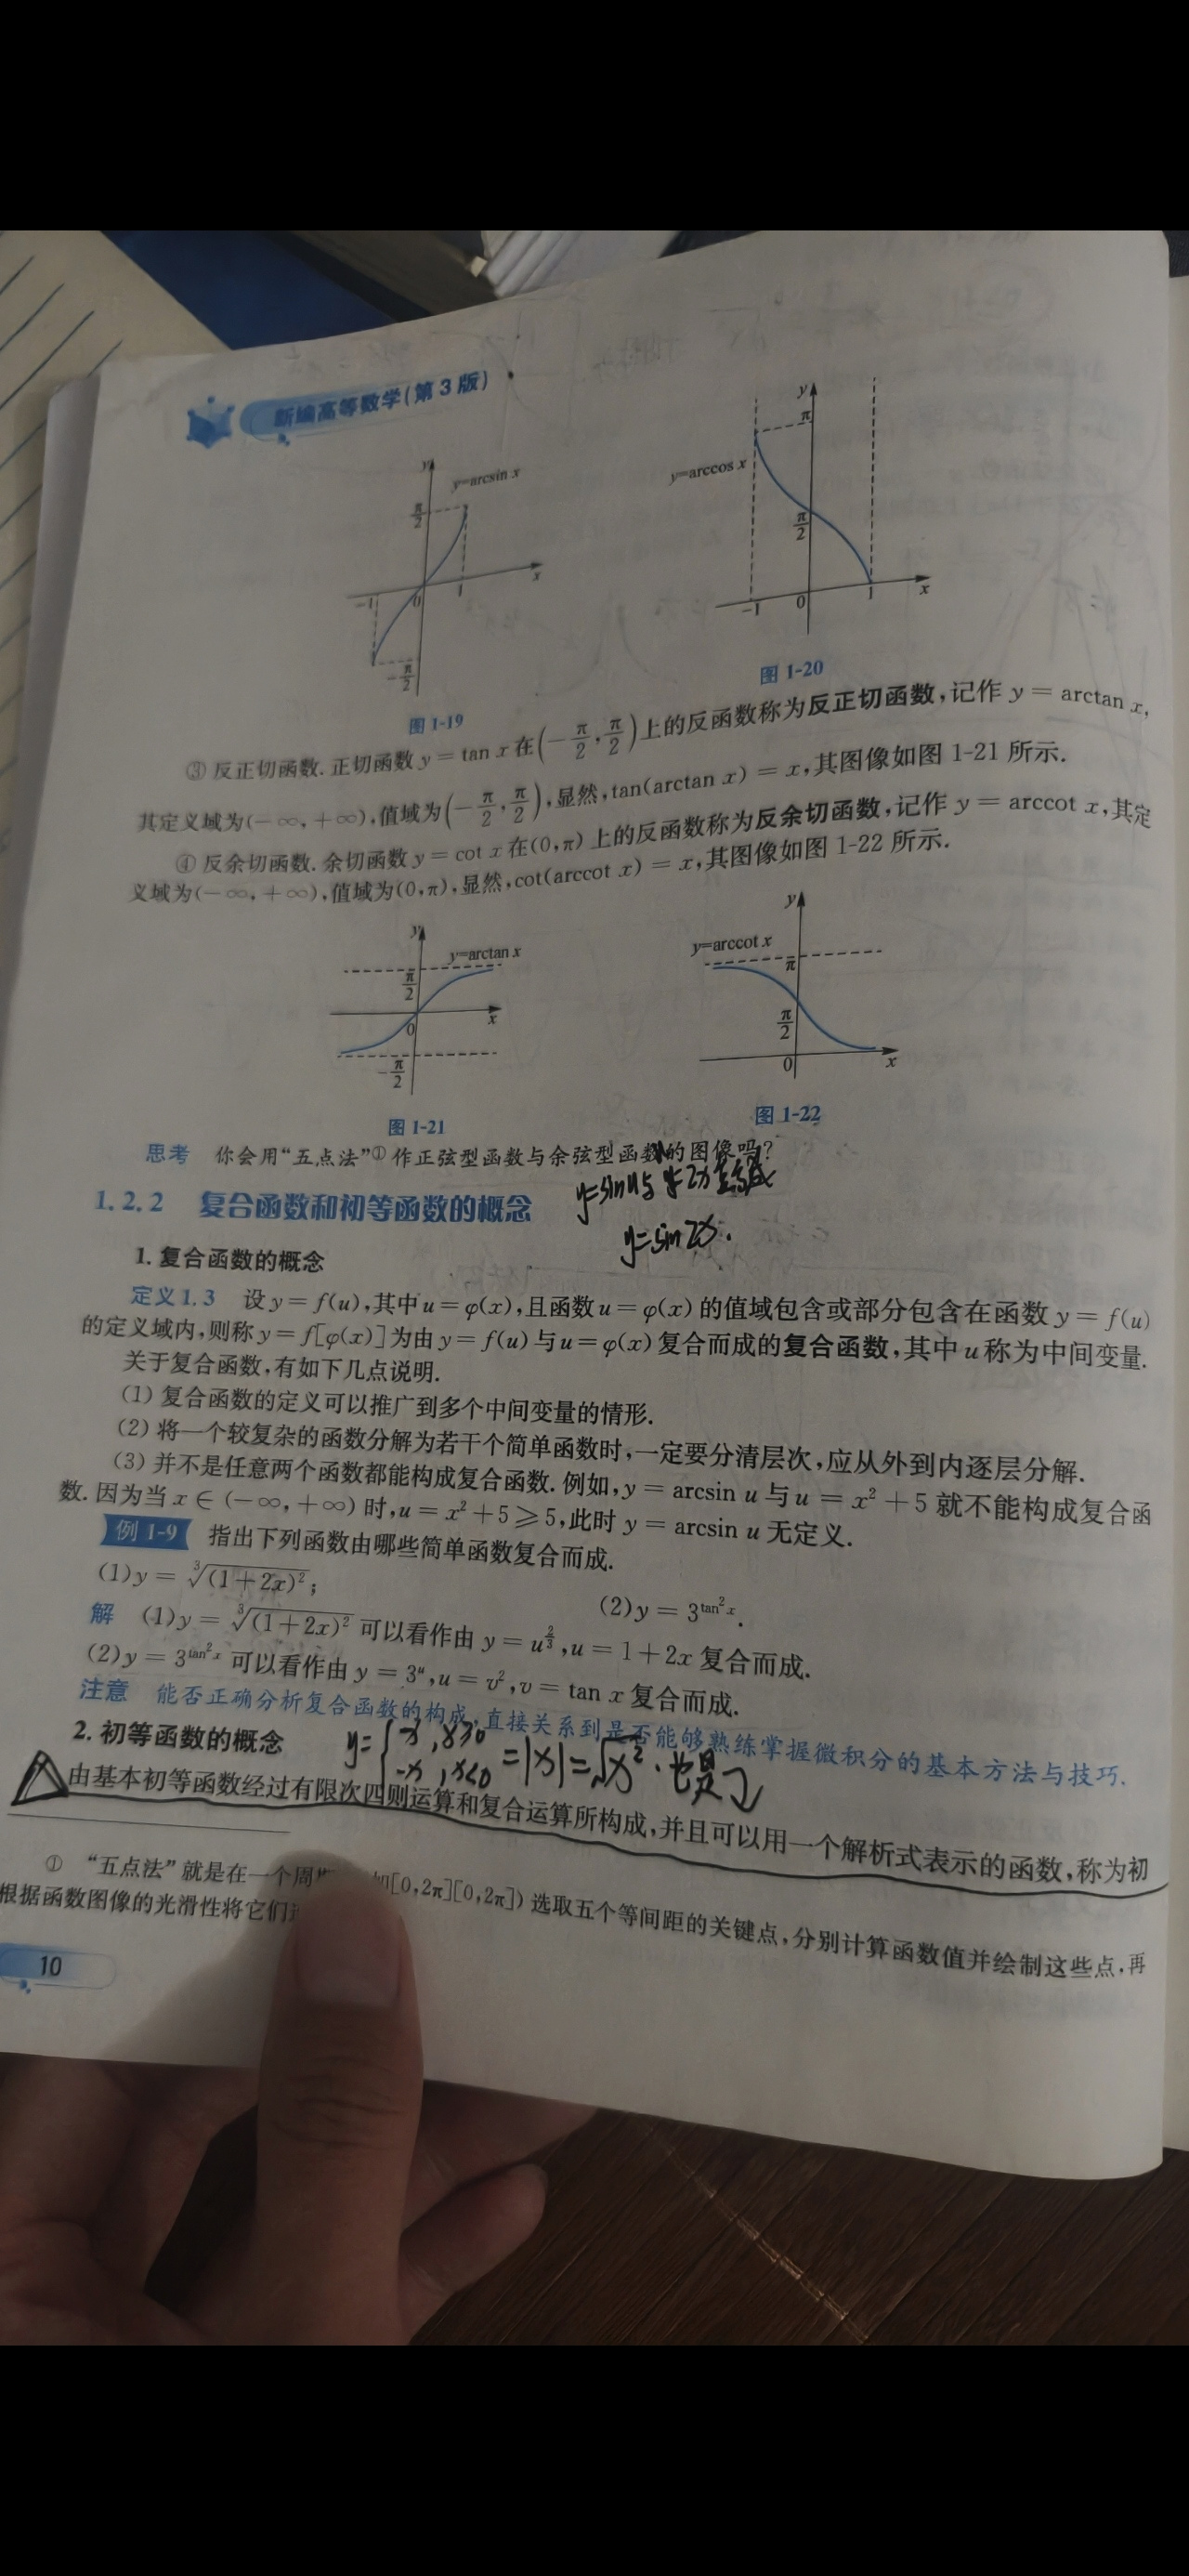 新编高等数学(第3版)
y
π
y=arccos x
π/2
-1
0
1
x
图 1-20
y
y=arcsin x
π/2
-1
0
1
x
-π/2
图 1-19
③ 反正切函数. 正切函数 y = tan x 在(-π/2, π/2)上的反函数称为反正切函数,记作 y = arctan x,
其定义域为(-∞,+∞),值域为(-π/2, π/2),显然,tan(arctan x) = x,其图像如图 1-21 所示.
④ 反余切函数. 余切函数 y = cot x 在(0,π) 上的反函数称为反余切函数,记作 y = arccot x,其定
义域为(-∞,+∞),值域为(0,π),显然,cot(arccot x) = x,其图像如图 1-22 所示.
y
y=arctan x
π/2
0
x
-π/2
图 1-21
y
y=arccot x
π
π/2
0
x
图 1-22
思考 你会用“五点法”①作正弦型函数与余弦型函数的图像吗?
y=sin u与
y=sin2x.
1.2.2 复合函数和初等函数的概念
1. 复合函数的概念
定义1.3 设 y = f(u),其中 u = φ(x),且函数 u = φ(x) 的值域包含或部分包含在函数 y = f(u)
的定义域内,则称 y = f[φ(x)] 为由 y = f(u) 与 u = φ(x) 复合而成的复合函数,其中 u 称为中间变量.
关于复合函数,有如下几点说明.
(1) 复合函数的定义可以推广到多个中间变量的情形.
(2) 将一个较复杂的函数分解为若干个简单函数时,一定要分清层次,应从外到内逐层分解.
(3) 并不是任意两个函数都能构成复合函数. 例如,y = arcsin u 与 u = x² + 5 就不能构成复合函
数. 因为当 x ∈ (-∞,+∞) 时,u = x² + 5 ⩾ 5,此时 y = arcsin u 无定义.
例 1-9 指出下列函数由哪些简单函数复合而成.
(1) y = ∛(1+2x)²; (2) y = 3^tan²x.
解 (1) y = ∛(1+2x)² 可以看作由 y = u^(2/3), u = 1 + 2x 复合而成.
(2) y = 3^tan²x 可以看作由 y = 3^u, u = v², v = tan x 复合而成.
注意 能否正确分析复合函数的构成,直接关系到是否能够熟练掌握微积分的基本方法与技巧.
2. 初等函数的概念
y={x, x≥0
-x, x<0 =|x|=√x². 也是
由基本初等函数经过有限次四则运算和复合运算所构成,并且可以用一个解析式表示的函数,称为初
① “五点法”就是在一个周 [0,2π][0,2π]) 选取五个等间距的关键点,分别计算函数值并绘制这些点,再
根据函数图像的光滑性将它们
10